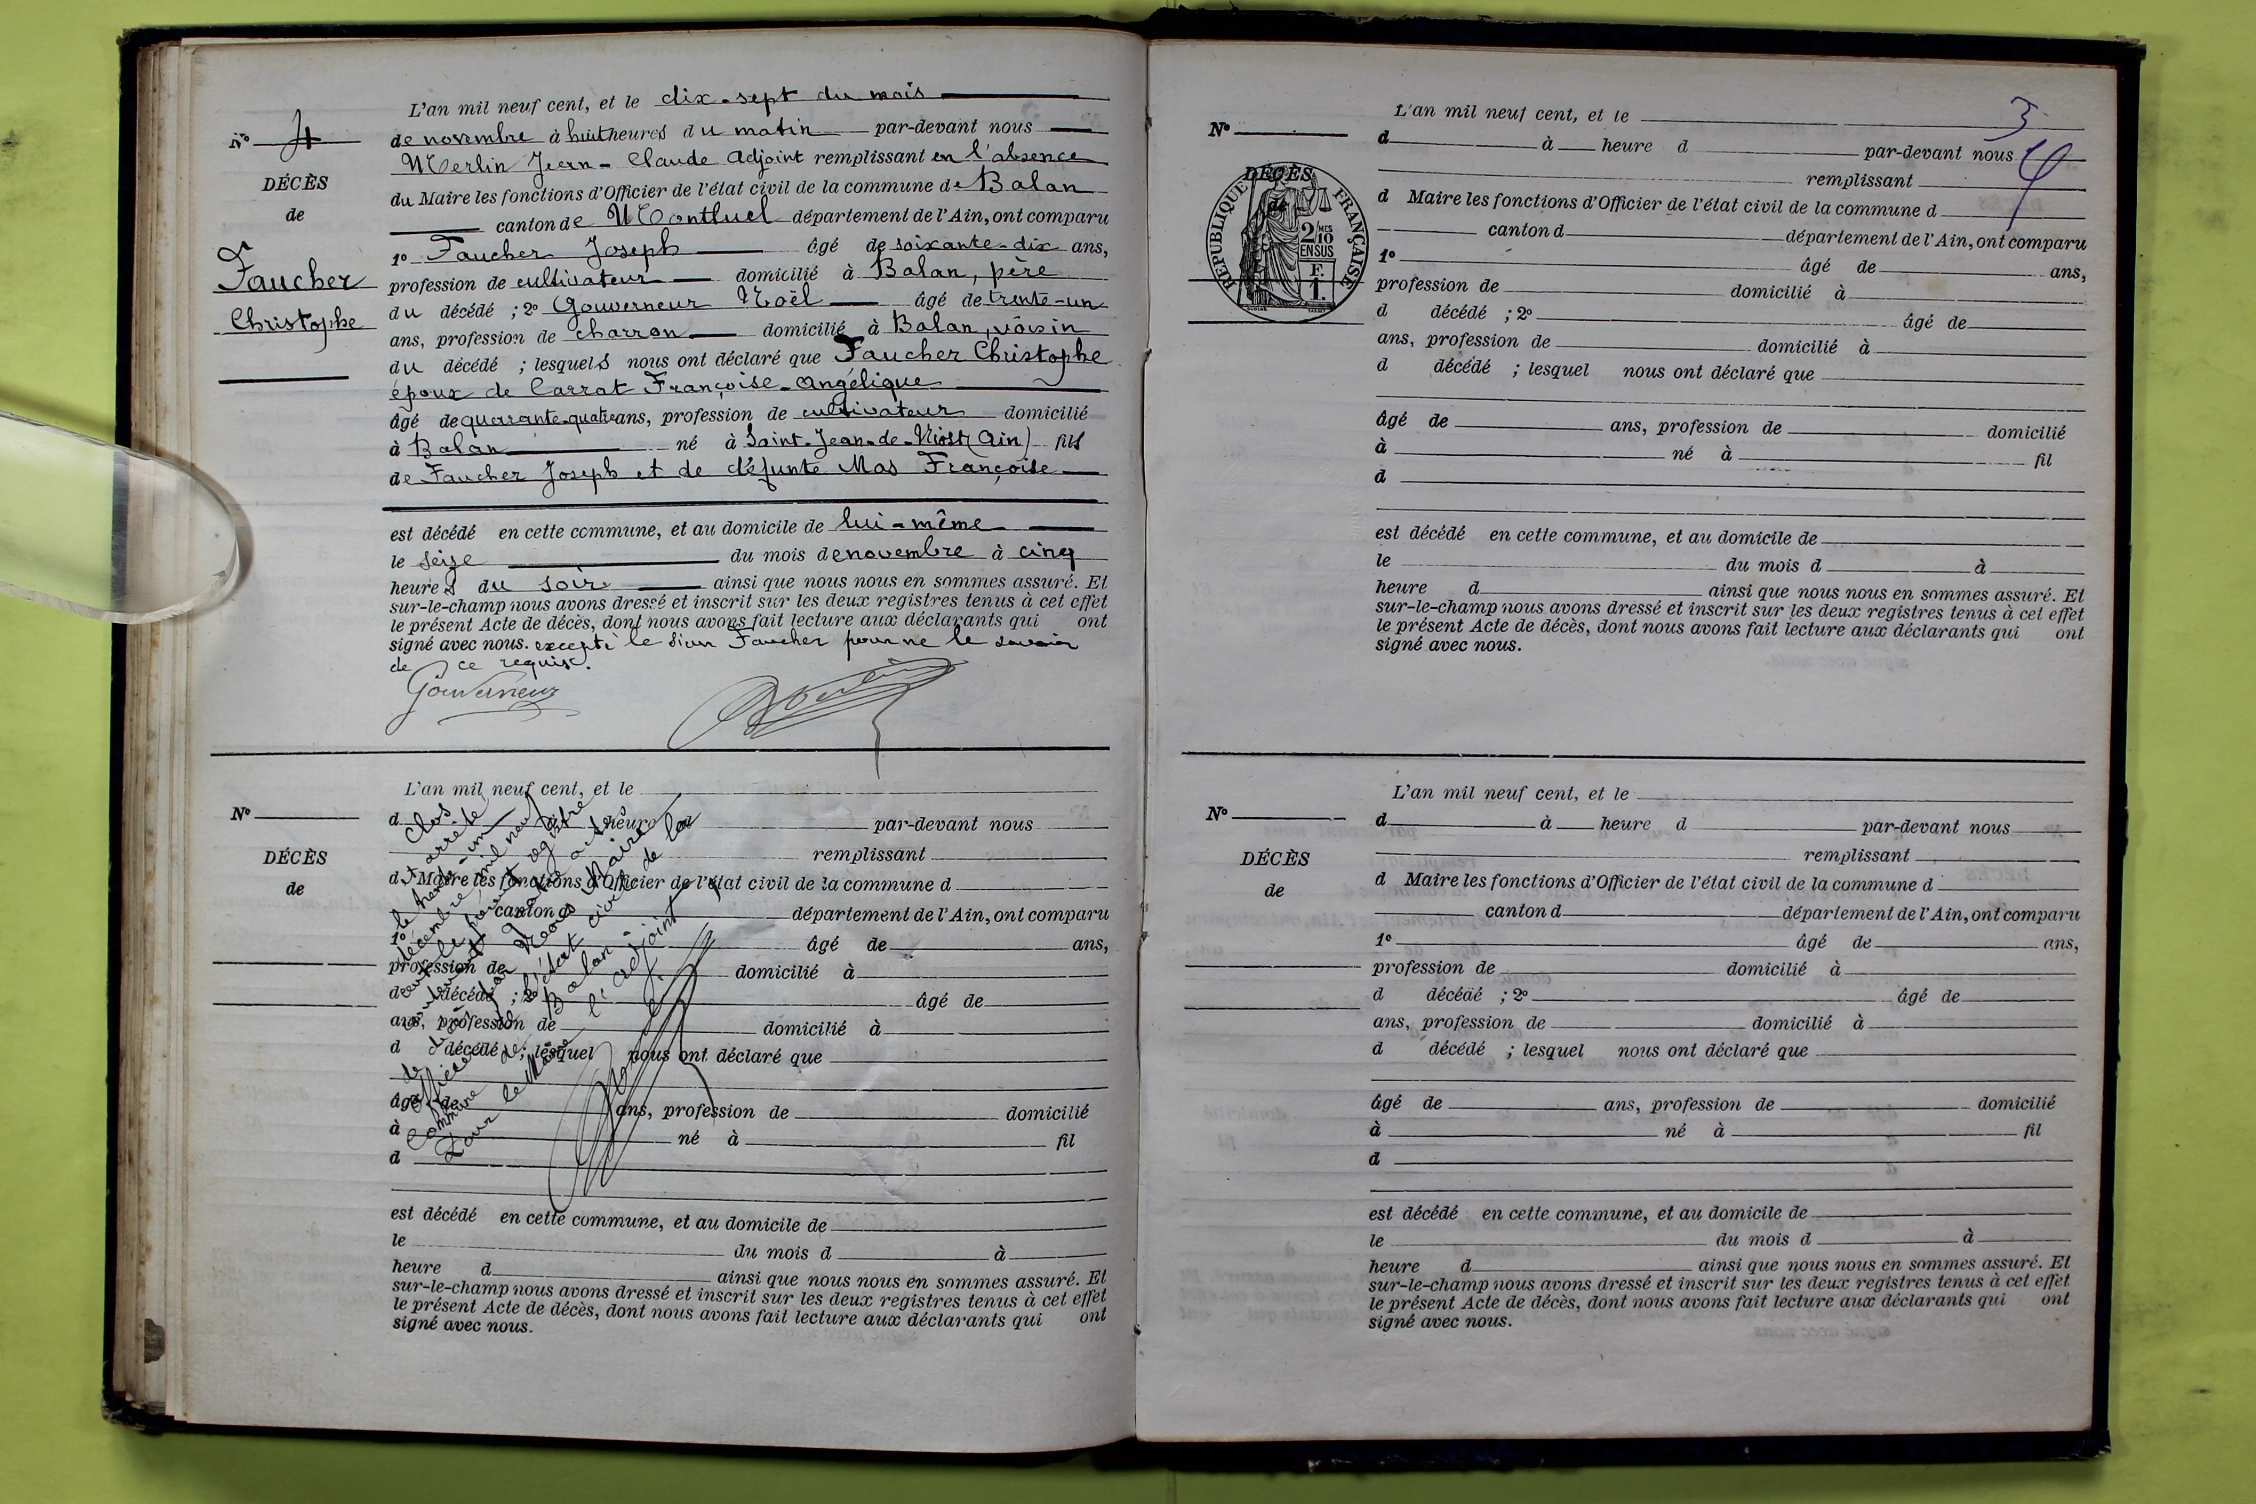 L'an mil neuf cent, et le dix-sept du mois
de novembre à huit heures du matin par-devant nous
Merlin Jean-Claude Adjoint remplissant en l'absence
du Maire les fonctions d'Officier de l'état civil de la commune de Balan
canton de Montluel département de l'Ain, ont comparu
1° Faucher Joseph âgé de soixante-dix ans,
profession de cultivateur domicilié à Balan, père
du décédé ; 2° Gouverneur Noël âgé de trente-un
ans, profession de charron domicilié à Balan, voisin
du décédé ; lesquels nous ont déclaré que Faucher Christophe
époux de Carrat Françoise-Angélique
âgé de quarante-quatre ans, profession de cultivateur domicilié
à Balan né à Saint-Jean-de-Niost (Ain) fils
de Faucher Joseph et de défunte Mas Françoise
est décédé en cette commune, et au domicile de lui-même
le seize du mois de novembre à cinq
heures du soir ainsi que nous nous en sommes assuré. Et
sur-le-champ nous avons dressé et inscrit sur les deux registres tenus à cet effet
le présent Acte de décès, dont nous avons fait lecture aux déclarants qui ont
signé avec nous. excepté le sieur Faucher pour ne le savoir
de ce requis.
Gouverneur
N° 4
DÉCÈS
de
Faucher
Christophe
N°
DÉCÈS
de
L'an mil neuf cent, et le
d à heure par-devant nous
remplissant
d Maire les fonctions d'Officier de l'état civil de la commune d
canton d département de l'Ain, ont comparu
1° âgé de ans,
profession de domicilié à
d décédé ; 2° âgé de
ans, profession de domicilié à
d décédé ; lesquel nous ont déclaré que
âgé de ans, profession de domicilié
à né à fil
d
est décédé en cette commune, et au domicile de
le du mois d à
heure d ainsi que nous nous en sommes assuré. Et
sur-le-champ nous avons dressé et inscrit sur les deux registres tenus à cet effet
le présent Acte de décès, dont nous avons fait lecture aux déclarants qui ont
signé avec nous.
Clos
et arrêté
le trente-un
décembre mil neuf
cent le présent registre
contenant quatre actes
de décès par Nous Maire
officier de l'état civil de la
commune de Balan.
Pour le Maire l'adjoint
3
4
N°
DÉCÈS
de
RÉPUBLIQUE FRANÇAISE
2/10 MES
EN SUS
F.
1.
L'an mil neuf cent, et le
d à heure d par-devant nous
remplissant
d Maire les fonctions d'Officier de l'état civil de la commune d
canton d département de l'Ain, ont comparu
1° âgé de ans,
profession de domicilié à
d décédé ; 2° âgé de
ans, profession de domicilié à
d décédé ; lesquel nous ont déclaré que
âgé de ans, profession de domicilié
à né à fil
d
est décédé en cette commune, et au domicile de
le du mois d à
heure d ainsi que nous nous en sommes assuré. Et
sur-le-champ nous avons dressé et inscrit sur les deux registres tenus à cet effet
le présent Acte de décès, dont nous avons fait lecture aux déclarants qui ont
signé avec nous.
N°
DÉCÈS
de
L'an mil neuf cent, et le
d à heure d par-devant nous
remplissant
d Maire les fonctions d'Officier de l'état civil de la commune d
canton d département de l'Ain, ont comparu
1° âgé de ans,
profession de domicilié à
d décédé ; 2° âgé de
ans, profession de domicilié à
d décédé ; lesquel nous ont déclaré que
âgé de ans, profession de domicilié
à né à fil
d
est décédé en cette commune, et au domicile de
le du mois d à
heure d ainsi que nous nous en sommes assuré. Et
sur-le-champ nous avons dressé et inscrit sur les deux registres tenus à cet effet
le présent Acte de décès, dont nous avons fait lecture aux déclarants qui ont
signé avec nous.